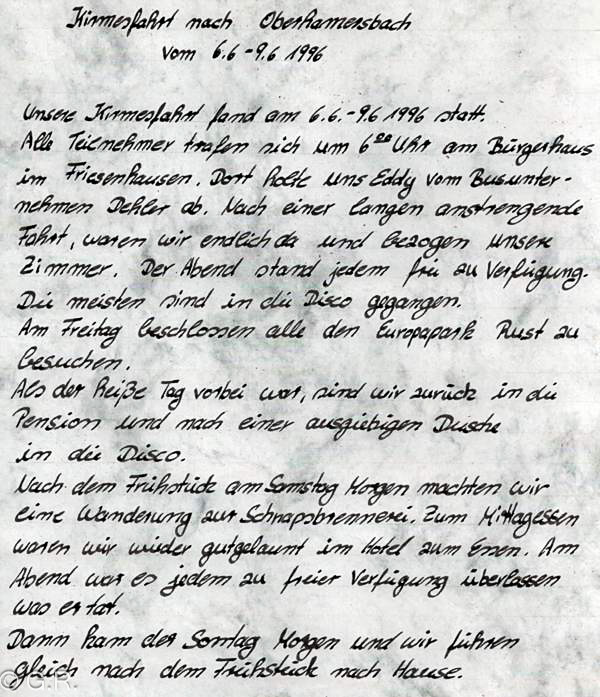 Kirmesfahrt nach Oberharmersbach
vom 6.6 - 9.6 1996
Unsere Kirmesfahrt fand am 6.6. - 9.6 1996 statt.
Alle Teilnehmer trafen sich um 6⁰⁰ Uhr am Bürgerhaus
im Friesenhausen. Dort holte uns Eddy vom Busunter-
nehmen Dehler ab. Nach einer langen anstrengende
Fahrt, waren wir endlich da und bezogen unsere
Zimmer. Der Abend stand jedem frei zu Verfügung.
Die meisten sind in die Disco gegangen.
Am Freitag beschlossen alle den Europapark Rust zu
besuchen.
Als der heiße Tag vorbei war, sind wir zurück in die
Pension und nach einer ausgiebigen Dusche
in die Disco.
Nach dem Frühstück am Samstag Morgen machten wir
eine Wanderung zur Schnapsbrennerei. Zum Mittagessen
waren wir wieder gutgelaunt im Hotel zum Essen. Am
Abend war es jedem zu freier Verfügung überlassen
was er tat.
Dann kam der Sonntag Morgen und wir führen
gleich nach dem Frühstück nach Hause.
© G.R.